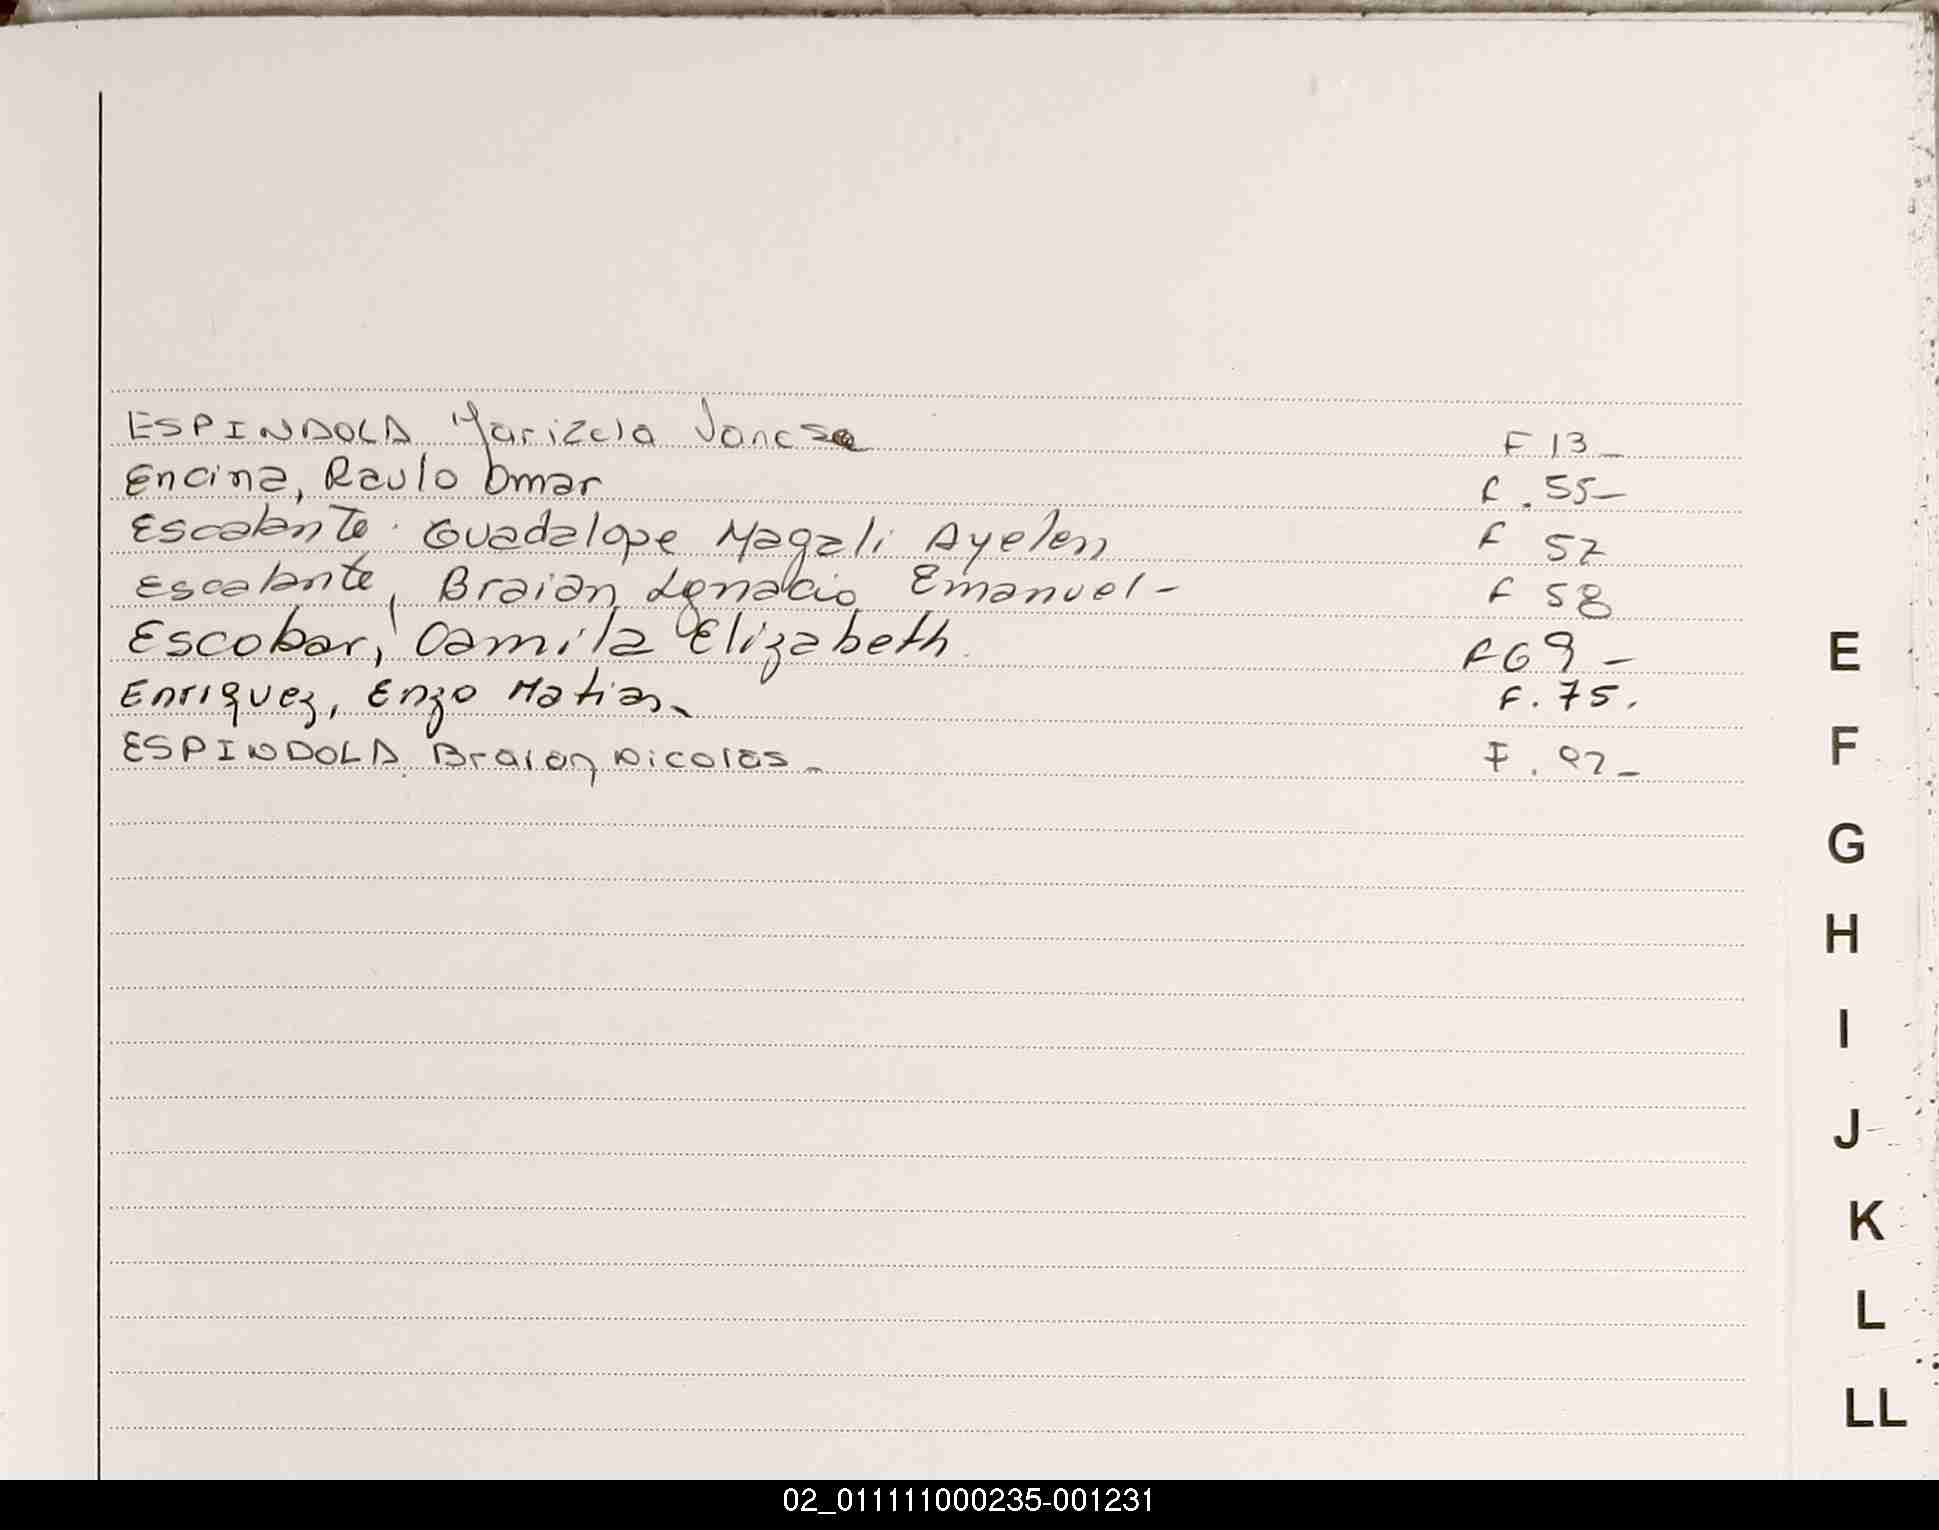 ESPINDOLA Marizela Vanesa F 13-
Encina, Raulo Omar F. 55-
Escalante. Guadalope Magali Ayelen F 57
Escalante, Braian Ignacio Emanuel- F 58
Escobar, Camila Elizabeth. F 69-
Enriquez, Enzo Matias. F. 75.
ESPINDOLA Braian Nicolas- F. 97-
E
F
G
H
I
J
K
L
LL
02_011111000235-001231